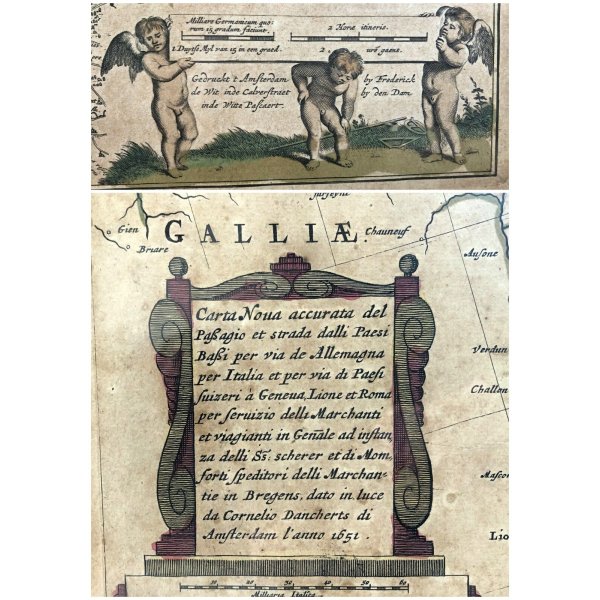 Milliare Germanicum quo-
rum 15 gradum faciunt.
2 Horæ itineris.
1 Duytse Myl van 15 in een graed.
2 . uré gaens.
Gedruckt t Amsterdam by Frederick
de Wit inde Calverstraet by den Dam
inde Witte Pascaert.
Gien
Briare
GALLIÆ
Chauneuf
Ausone
Carta Noua accurata del
Paßagio et strada dalli Paesi
Baßi per via de Allemagna
per Italia et per via di Paesi
suizeri à Geneua, Lione et Roma
per seruizio delli Marchanti
et viagianti in Gen̄ale ad instan,
za delli Ss: scherer et di Mom,
forti speditori delli Marchan-
tie in Bregens, dato in luce
da Cornelio Dancherts di
Amsterdam l'anno 1651.
Verdun
Challon
Mascon
Lio
10 20 30 40 50 60
Milliaria Italica